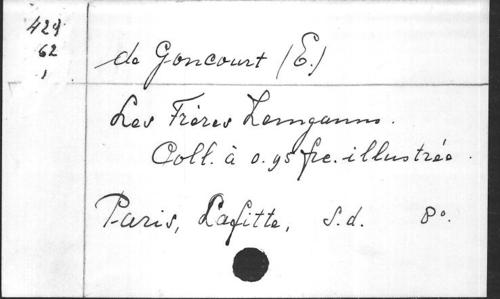 429
62
1
de Goncourt (E.)
Les Frères Zemganno.
Coll. à 0.95 frc. illustrée.
Paris, Lafitte, s.d. 8°.